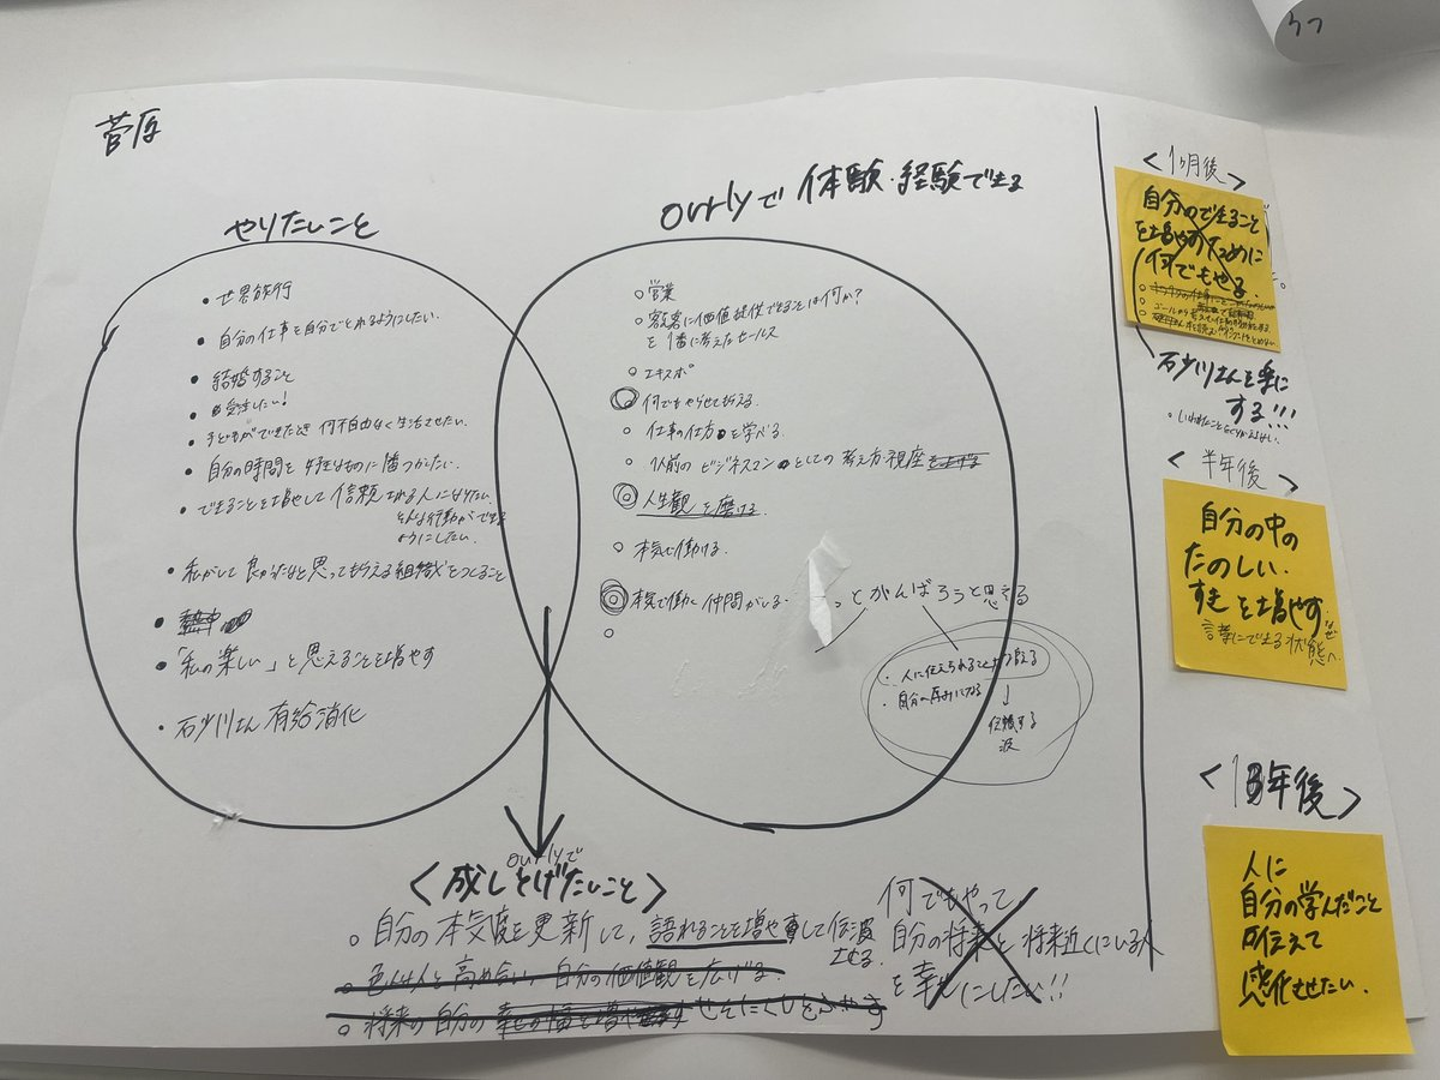 菅原
やりたいこと
・世界旅行
・自分の仕事を自分でとれるようにしたい.
・結婚すること
・受注したい!
・子どもができたとき 何不自由なく生活させたい.
・自分の時間を好きなものに費つかたい.
・できることを増やして信頼される人になりたい.
そんな行動ができる
ようにしたい.
・私がして良かったなと思ってもらえる組織をつくること
・「私の楽しい」と思えることを増やす
・石少川さん有給消化
ourlyで 体験・経験できる
○営業
○顧客に価値提供できることは何か?
を1番に考えたセールス
○エキスポ
◎何でもやらせてもらえる.
○仕事の仕方を学べる.
○1人前のビジネスマンとしての考え方・視座
◎人生観を磨ける.
○本気で働ける.
◎本気で働く仲間がいる.
っとがんばろうと思える
・人に伝えられることが増える
・自分の厚みになる
↓
伝頼する
波
ourlyで
<成しとげたいこと>
○自分の本気度を更新して, 語れることを増やして伝波
させる.
色んな人と高め合い 自分の価値観を広げる.
○将来の自分の幸せの幅を増やす
何でもやって
自分の将来と将来近くにいる人
を幸せにしたい!!
<1ヶ月後>
自分のできること
を増やすために
何でもやる.
石少川さんを楽に
する!!!
<半年後>
自分の中の
たのしい.
すき を増やす.
言葉にできる状態へ.
<1年後>
人に
自分の学んだこと
伝えて
感化させたい.